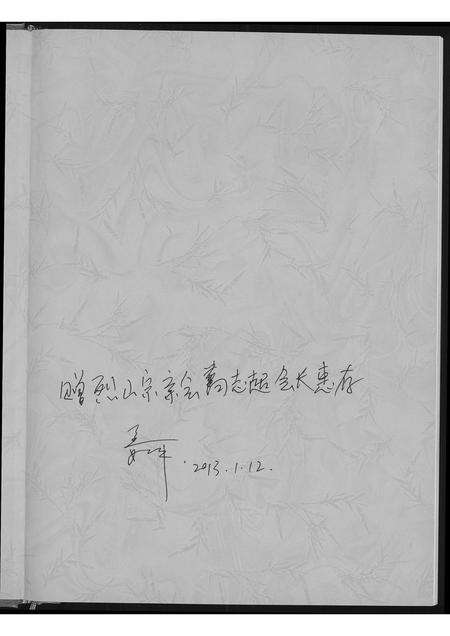 赠烈山宗亲会高志超会长惠存
2013.1.12.